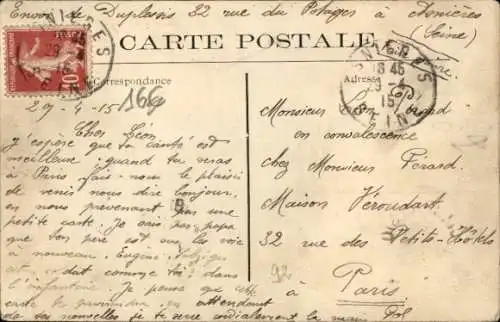 Envoi de Duplessis 32 rue du Potages à Asnières
(Seine)
CARTE POSTALE
ASNIERES
18 45
29 - 4
15
SEINE
Correspondance
Adresse
29-4-15
166
Cher Léon
J'espère que ta santé est
meilleure; quand tu iras
à Paris fais-nous le plaisir
de venir nous dire bonjour,
en nous prévenant par une
petite carte. Je sais par papa
que ton père est sur les
à nouveau. Eugène
dit comme toi dans
l'infanterie. Je pense que cette
carte te parviendra, en attendant
de tes nouvelles je te serre cordialement la main
Monsieur Léon
en convalescence
chez Monsieur Pérard.
Maison Véroudart.
32 rue des Petits-Hôtels
à Paris
92